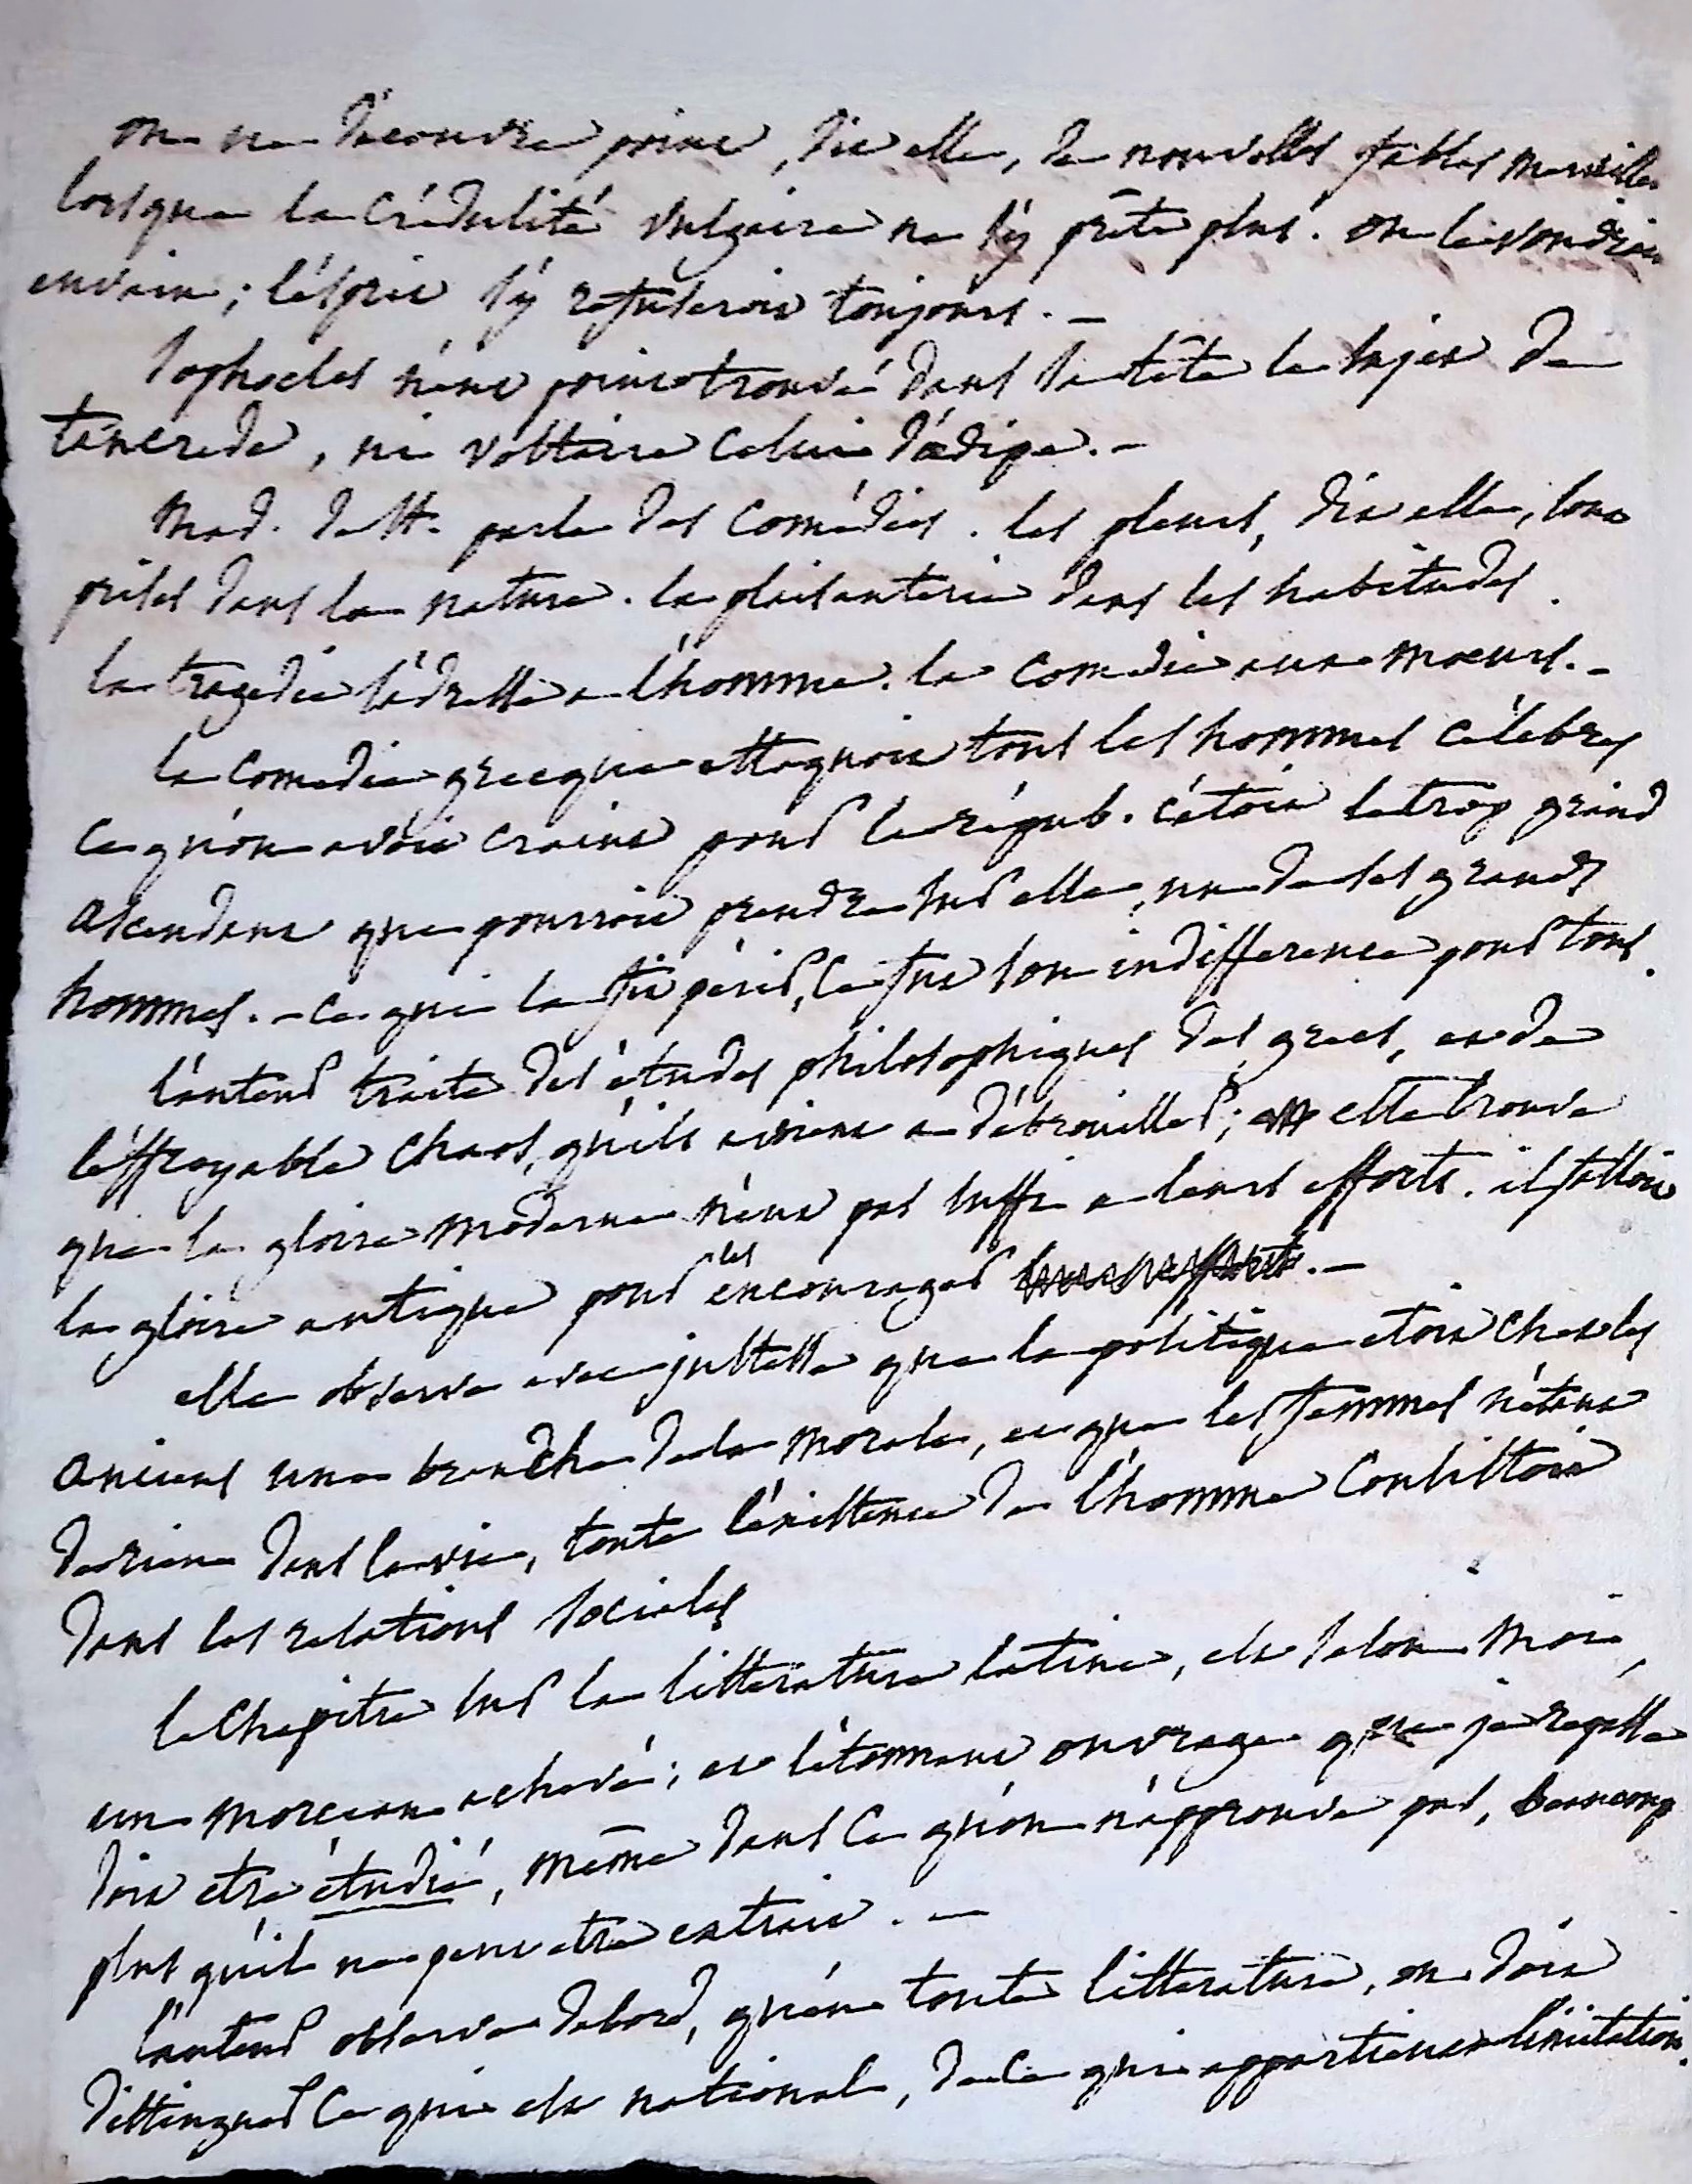 on ne découvre point, dit elle, de nouvelles fables merveilles
lorsque la crédulité vulgaire ne s'y prête plus. on le voudroit
envain; l'ésprit s'y refuseroit toujours. —
Sophocles n'eut point trouvé dans sa tête le sujet de
tancrede, ni voltaire celui d'œdipe. —
Mad. de St. parle des comédies. les pleurs, dit elle, sont
prises dans la nature. la plaisanterie dans les habitudes.
la tragedie s'adresse a l'homme. la comedie aux mœurs. —
la comedie grecque attaquoit tous les hommes célebres
ce qu'on avoit craint pour la répub. c'étoit le trop grand
ascendant que pourroit prendre sur elle, un de ses grands
hommes. — ce qui la fit périr, ce fut son indifference pour tous.
l'auteur traite des études philosophiques des grecs, et de
l'éffroyable chaos, qu'ils avoient a débrouiller; elle trouve
que la gloire moderne n'eut pas suffi a leurs efforts. il falloit
la gloire antique pour les encourager. —
elle observe avec justesse que la politique etoit chez les
anciens une branche de la morale, et que les femmes n'étant
de rien dans la vie, toute l'éxistence de l'homme consistoit
dans les relations sociales
le chapitre sur la litterature latine, est selon moi,
un morceau achevé; et l'étonnant ouvrage que je repasse
doit etre étudié, même dans ce qu'on n'approuve pas, beaucoup
plus qu'il ne peut etre extrait. —
l'auteur observe dabord, qu'en toute litterature, on doit
distinguer ce qui est national, de ce qui appartient a l'imitation.